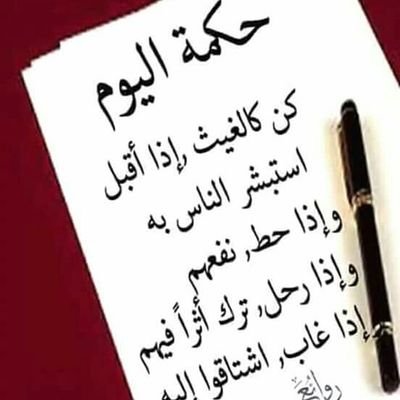 حكمة اليوم
كن كالغيث ,إذا أقبل
استبشر الناس به
وإذا حط, نفعهم
وإذا رحل, ترك أثراً فيهم
إذا غاب, اشتاقوا إليه
روائع